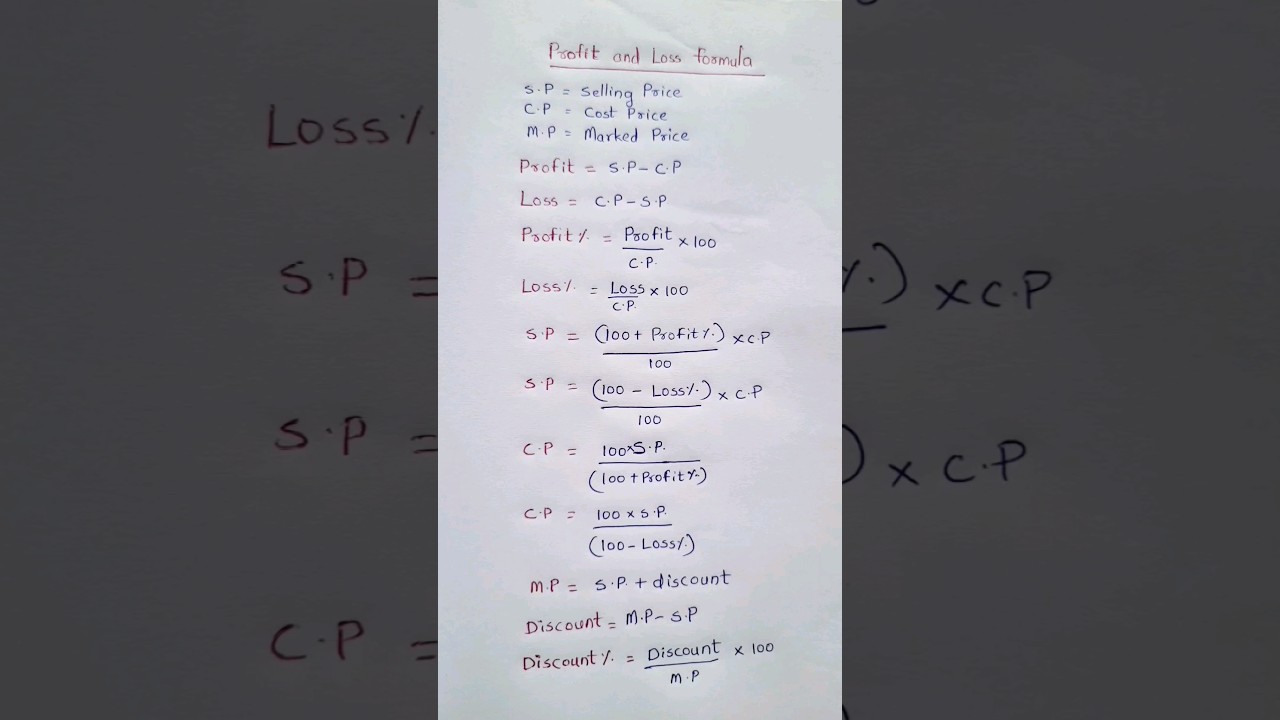 Profit and Loss formula
S.P = Selling Price
C.P = Cost Price
M.P = Marked Price
Profit = S.P - C.P
Loss = C.P - S.P
Profit % = Profit × 100
C.P.
Loss % = Loss × 100
C.P.
S.P = (100 + Profit %) × C.P
100
S.P = (100 - Loss %) × C.P
100
C.P = 100 × S.P.
(100 + Profit %)
C.P = 100 × S.P.
(100 - Loss %)
M.P = S.P. + discount
Discount = M.P - S.P
Discount % = Discount × 100
M.P
Loss %.
S.P =
%) × C.P
S.P =
) × C.P
C.P =